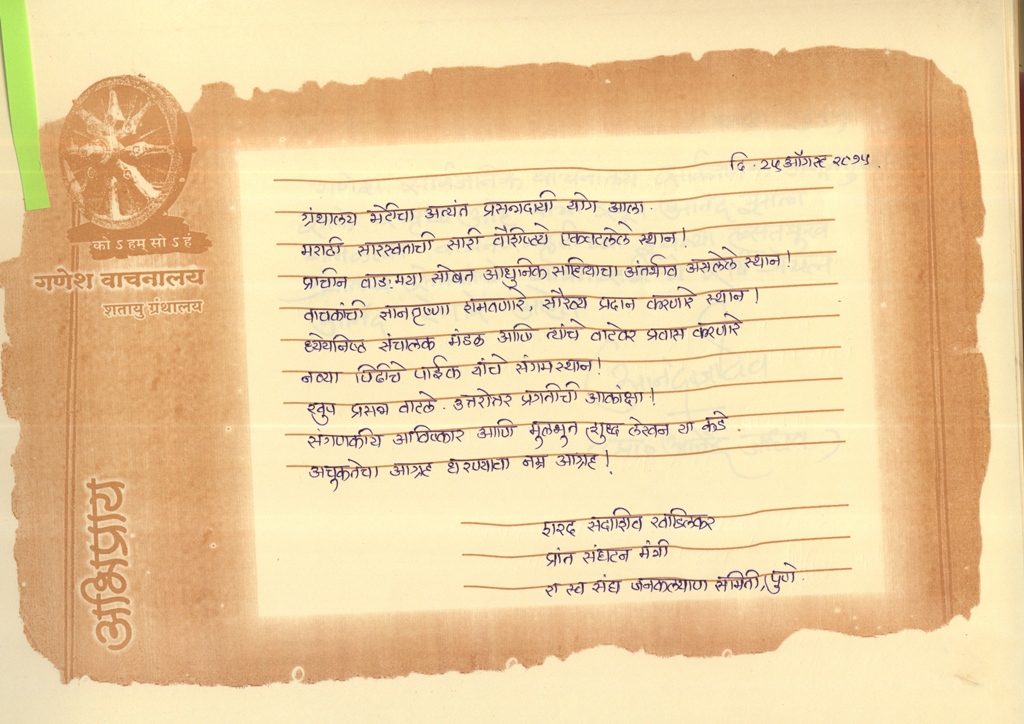 दि. २५ ऑगस्ट २०१५.
को ऽ हम् सो ऽ हं
गणेश वाचनालय
शतायु ग्रंथालय
अभिप्राय
ग्रंथालय भेटीचा अत्यंत प्रसन्नदायी योग आला.
मराठी सारस्वताची सारी वैशिष्ट्ये एकवटलेले स्थान!
प्राचीन वाङ्मया सोबत आधुनिक साहित्याचा अंतर्भाव असलेले स्थान!
वाचकांची ज्ञानतृष्णा शमवणारे, सौख्य प्रदान करणारे स्थान!
ध्येयनिष्ठ संचालक मंडळ आणि त्यांचे वाटेवर प्रवास करणारे
नव्या पिढीचे पाईक यांचे संगमस्थान!
खुप प्रसन्न वाटले. उत्तरोत्तर प्रगतीची आकांक्षा!
संगणकीय आविष्कार आणि मूलभुत शुद्ध लेखन या कडे
अचूकतेचा आग्रह धरण्याचा नम्र आग्रह!
शरद सदाशिव खाडिलकर
प्रांत संघटन मंत्री
रा स्व संघ जनकल्याण समिती, पुणे.